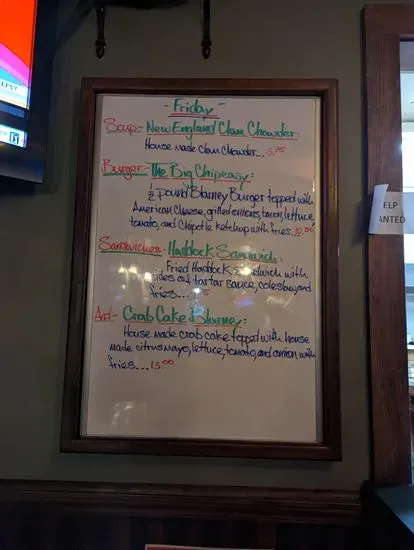 - Friday -
Soup- New England Clam Chowder:
House made clam Chowder...
Burger- The Big Chipeasy:
1/2 pound Blarney Burger topped with
American Cheese, grilled onions, bacon, lettuce,
tomato, and Chipotle ketchup with fries.
Sandwiches- Haddock Sandwich:
Fried Haddock Sandwich with
sides of tartar sauce, coleslaw, and
fries...
And- Crab Cake Blarney:
House made crab cake topped with house
made citrus mayo, lettuce, tomato, and onion with
fries... 13.00
ELP
ANTED